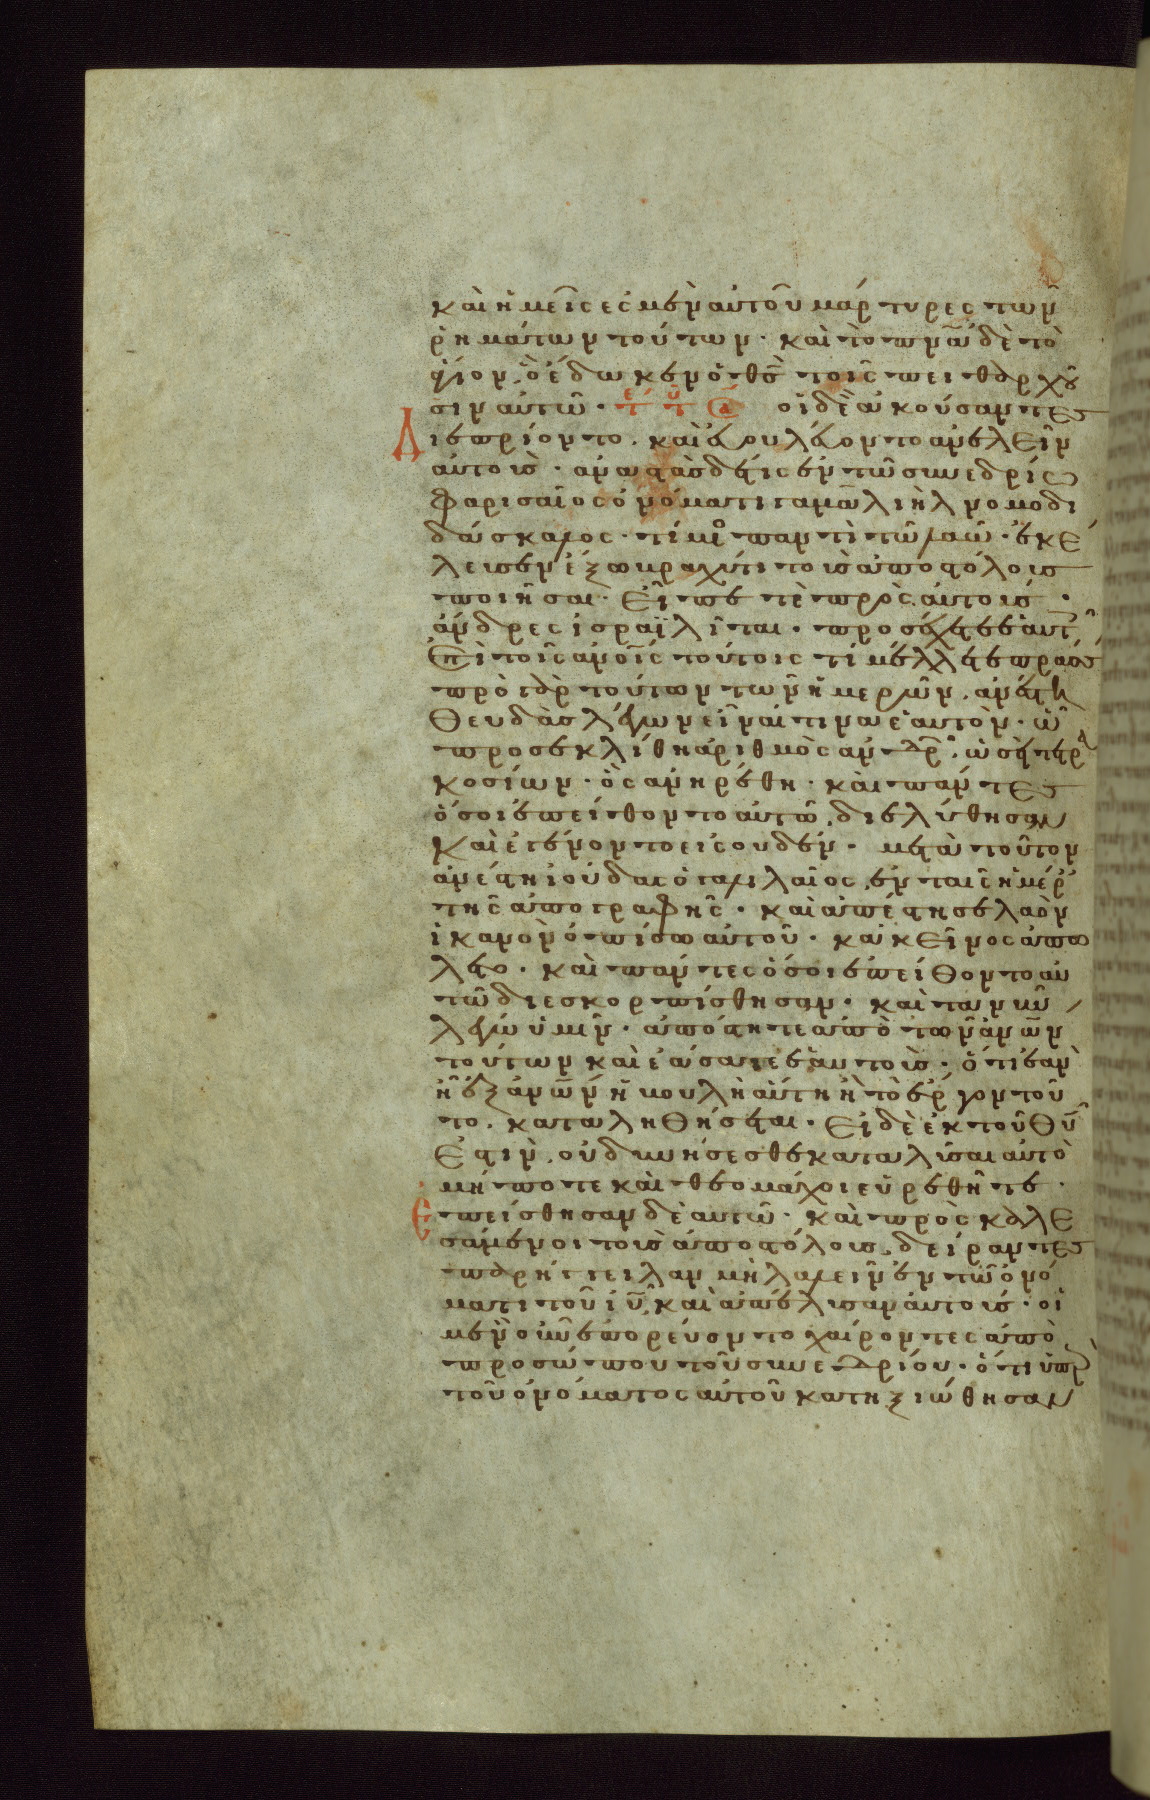 καὶ ἡμεῖς ἐσμεν αὐτοῦ μάρτυρες τῶν
ῥημάτων τούτων · καὶ τὸ πνᾶ δὲ τὸ
ἅγιον, ὃ ἔδωκεν ὁ θς τοῖς πειθαρχοῦ
σιν αὐτῶ · οἱ δὲ ἀκούσαντες
Διεπρίοντο · καὶ ἐβουλεύοντο ἀνελεῖν
αὐτούς · ἀναστὰς δέ τις ἐν τῶ συνεδρίω
φαρισαῖος ὀνόματι γαμαλιὴλ νομοδι
δάσκαλος · τίμιος παντὶ τῶ λαῶ · ἐκέ
λευσεν ἔξω βραχύ τι τοὺς ἀποστόλους
ποιῆσαι · Εἶπέ τε πρὸς αὐτούς ·
ἄνδρες ἰσραϊλῖται · προσέχετε ἑαυτοῖς
Ἐπὶ τοῖς ἀνοις τούτοις τί μέλλετε πράσσειν
πρὸ γὰρ τούτων τῶν ἡμερῶν · ἀνέστη
Θευδᾶς λέγων εἶναί τινα ἑαυτόν · ᾧ
προσεκλίθη ἀριθμὸς ἀνδρῶν ὡσεὶ τετρα
κοσίων · ὃς ἀνηρέθη · καὶ πάντες
ὅσοι ἐπείθοντο αὐτῶ, διελύθησαν
Καὶ ἐγένοντο εἰς οὐδέν · μετὰ τοῦτον
ἀνέστη ἰούδας ὁ γαλιλαῖος, ἐν ταῖς ἡμέραις
τῆς ἀπογραφῆς · καὶ ἀπέστησε λαὸν
ἱκανὸν ὀπίσω αὐτοῦ · κἀκεῖνος ἀπώ
λετο · καὶ πάντες ὅσοι ἐπείθοντο αὐ
τῶ διεσκορπίσθησαν · καὶ τὰ νῦν
λέγω ὑμῖν · ἀπόστητε ἀπὸ τῶν ἀνων
τούτων καὶ ἐάσατε αὐτούς · ὅτι ἐὰν
ἦ ἐξ ἀνων ἡ βουλὴ αὕτη ἢ τὸ ἔργον τοῦ
το · καταλυθήσεται · Εἰ δὲ ἐκ τοῦ Θῦ
Ἐστιν, οὐ δυνήσεσθε καταλῦσαι αὐτὸ
μήποτε καὶ θεομάχοι εὑρεθῆτε ·
Ἐπείσθησαν δὲ αὐτῶ · καὶ προσκαλε
σάμενοι τοὺς ἀποστόλους, δείραντες
παρήγγειλαν μὴ λαλεῖν ἐν τῶ ὀνό
ματι τοῦ ἰῦ, καὶ ἀπέλυσαν αὐτούς · οἱ
μὲν οὖν ἐπορεύοντο χαίροντες ἀπὸ
προσώπου τοῦ συνεδρίου · ὅτι ὑπὲρ
τοῦ ὀνόματος αὐτοῦ κατηξιώθησαν